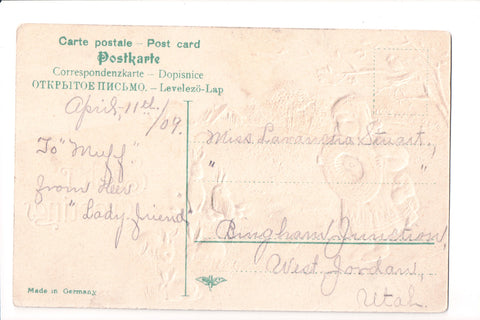 Carte postale – Post card
Postkarte
Correspondenzkarte – Dopisnice
ОТКРЫТОЕ ПИСЬМО. – Levelező-Lap
April, 11th, /09.
To "Muff"
from Her
"Lady friend"
Miss Lavancha Stuart,
" "
Bingham Junction,
West Jordan,
Utah.
Made in Germany